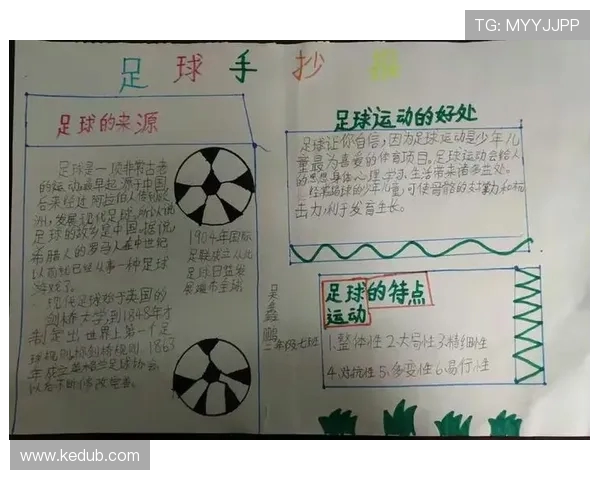 TG: MYYJJPP
足球手抄报
足球的来源
足球是一项非常古老
的运动,最早起源于中国,
后来经过阿拉伯人传到欧
洲,发展现代足球。所以说
足球的故乡是中国。据说,
希腊人的罗马人在中世纪
以前就已经从事一种足球
游戏了。
现代足球始于英国的
剑桥大学,到1848年才
制定出世界上第一个足
球规则称剑桥规则。1863
年成立英格兰足球协会,
以后不断修改完善。
1904年国际
足联成立从此
足球日益发
展遍布全球
二年级七班
足球运动的好处
足球让你自信,因为足球运动是少年儿
童最为喜爱的体育项目。足球运动会给人
的思想身体心理、学习、生活带来诸多益处。
经常踢球的少年儿童,可使骨骼的对勤和抗
击力,利于发育生长。
足球的特点
运动
1.整体性 2.大局性 3.精细性
4.对抗性 5.多变性 6.易行性
www.kedub.com